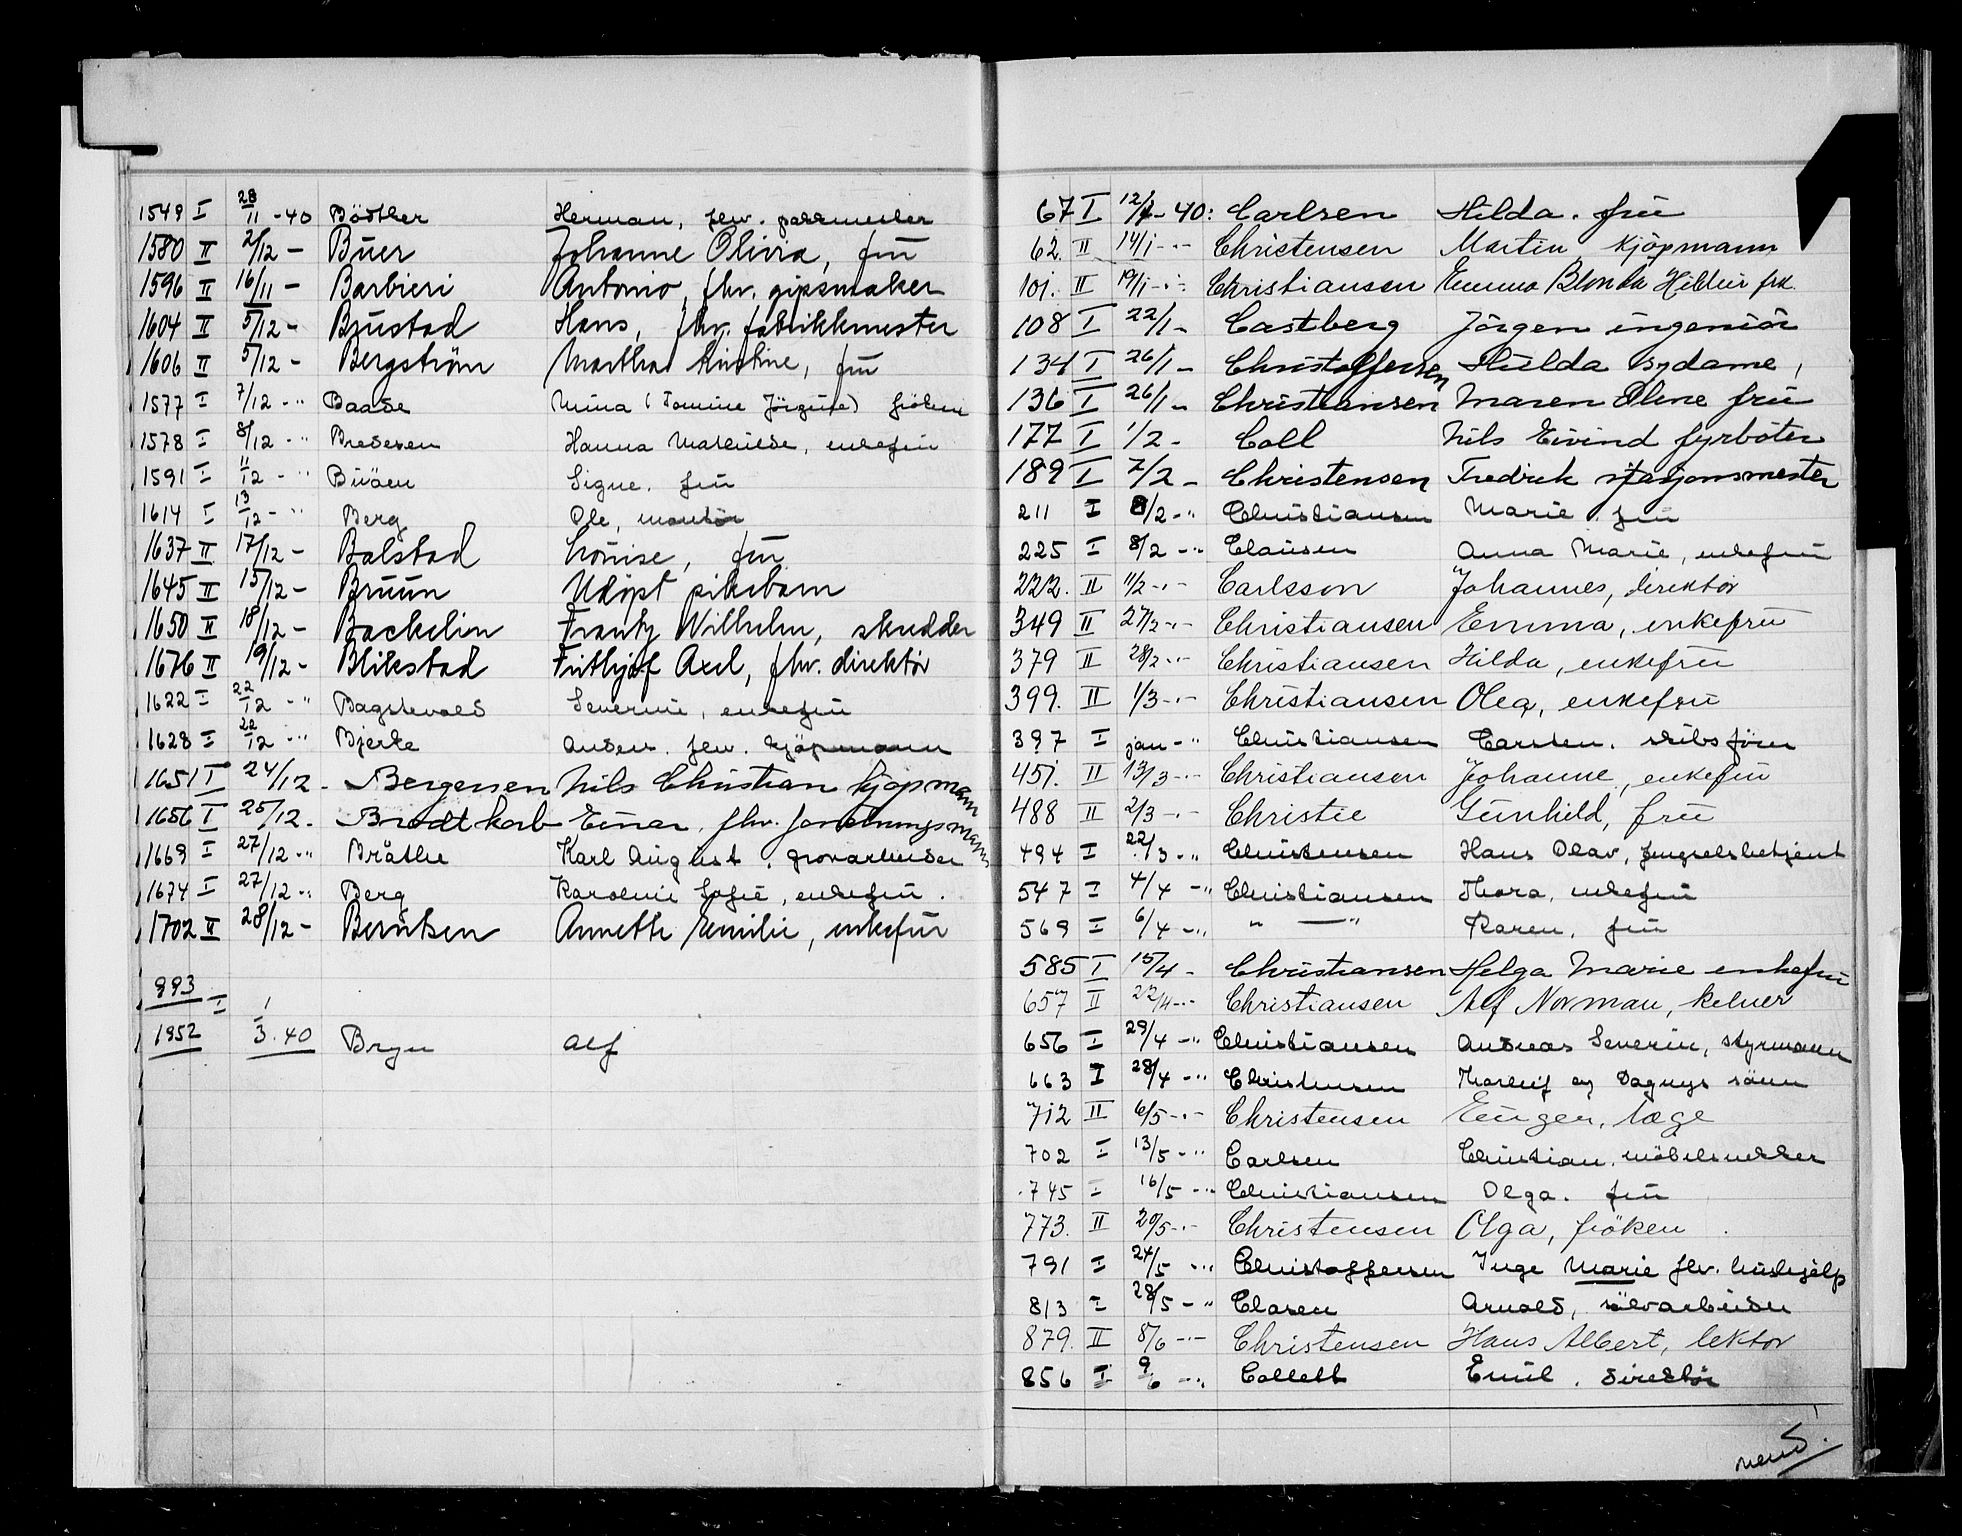 1549 I 28/11 -40 Bödtker Herman, fhv. parkmester
1580 II 2/12 - Buer Johanne Olivia, frü
1596 II 16/11 - Barbieri Antonio, fhv. gipsmaker
1604 II 5/12 - Brustad Hans, fhv. fabrikkmester
1606 II 5/12 - Bergström Martha Kirstine, frü
1577 I 7/12 -" Baade Mina (Tomine Jörgine) fröken
1578 I 8/12 -" Bredesen Hanna Mathilde, enkefrü
1591 I 11/12 -" Buåen Signe. frü
1614 I 13/12 -" Berg Ole, montör
1637 II 17/12 - Balstad Louise, frü
1645 II 15/12 - Bruun Udöpt pikebarn
1650 II 18/12 - Backelin Frantz Wilhelm, skredder
1676 II 19/12 - Blikstad Frithjof Axel, fhv. direktör
1622 I 22/12 -" Bagstevold Severine, enkefrü
1628 I 22/12 -" Bjerke Anders. fhv. kjöpmann
1651 I 24/12 - Bergersen Nils Christian kjöpmann
1656 I 25/12 - Brodtkorb Einar. fhv. forretningsmann
1669 I 27/12 -" Bråthe Karl August, grovarbeider
1674 I 27/12 -" Berg Karoline Sofie, enkefrü.
1702 II 28/12 - Berntsen Annette Emilie, enkefrü
993
I 1
1952 3.40 Bryn Alf
67 I 12/1 - 40: Carlsen Hilda. frü
62. II 14/1 -"- Christensen Martin kjöpmann
101. II 19/1 -"- Christiansen Emma Blonda Hildur frk.
108 I 22/1 - Castberg Jörgen ingeniör
134 I 26/1 - Christoffersen Hulda sydame,
136 I 26/1 - Christiansen Maren Oline frü
177 I 1/2 - Coll Nils Eivind fyrböter
189 I 7/2 - Christensen Fredrik stasjonsmester
211 I 8/2 -" Christiansen Marie. frü
225 I 8/2 -" Clausen Anna Marie, enkefrü
222. II 11/2 -"- Carlsson Johannes, direktör
349 II 27/2 -"- Christiansen Emma, enkefrü
379 II 28/2 -"- Christiansen Hilda, enkefrü
399. II 1/3 -"- Christiansen Olea, enkefrü
397 I jan -" Christiansen Carsten. skibsförer
451. II 13/3 -"- Christiansen Johanne, enkefrü
488 II 2/3 -"- Christie Gunhild, frü
494 I 22/3 -" Christensen Hans Olav, fengselsbetjent
547 I 4/4 -" Christiansen Thora, enkefrü
569 I 6/4 -" " — " Karen, frü
585 I 15/4 - Christiansen Helga Marie enkefrü
657 II 22/4 -"- Christiansen Alf Norman, kelner
656 I 29/4 -" Christiansen Andreas Severin, styrmann
663 I 28/4 -" Christensen Thorleif og Dagnys sönn
712 II 6/5 -"- Christensen Eugen, læge
702 I 13/5 -" Carlsen Christian, möbelsnekker
745 I 16/5 -" Christiansen Olga. frü
773. II 20/5 -"- Christensen Olga, fröken
791 I 24/5 -" Christoffersen Inge Marie fhv. hushjelp
813 I 28/5 -" Clasen Arnold, sölvarbeider
879. II 8/6 -"- Christensen Hans Albert, lektor
856 I 9/6 -" Collett Emil. direktör
vend!